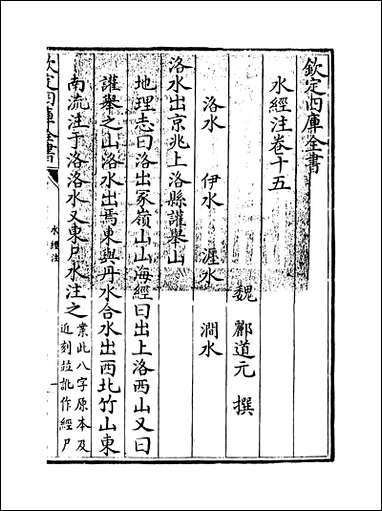 欽定四庫全書
水經注卷十五
魏 酈道元 撰
洛水 伊水 瀍水 澗水
洛水出京兆上洛縣讙舉山
地理志曰洛出冢嶺山山海經曰出上洛西山又曰
讙舉之山洛水出焉東與丹水合水出西北竹山東
南流注于洛洛水又東尸水注之
案此八字原本及
近刻並訛作經尸
欽定四庫全書
水經注